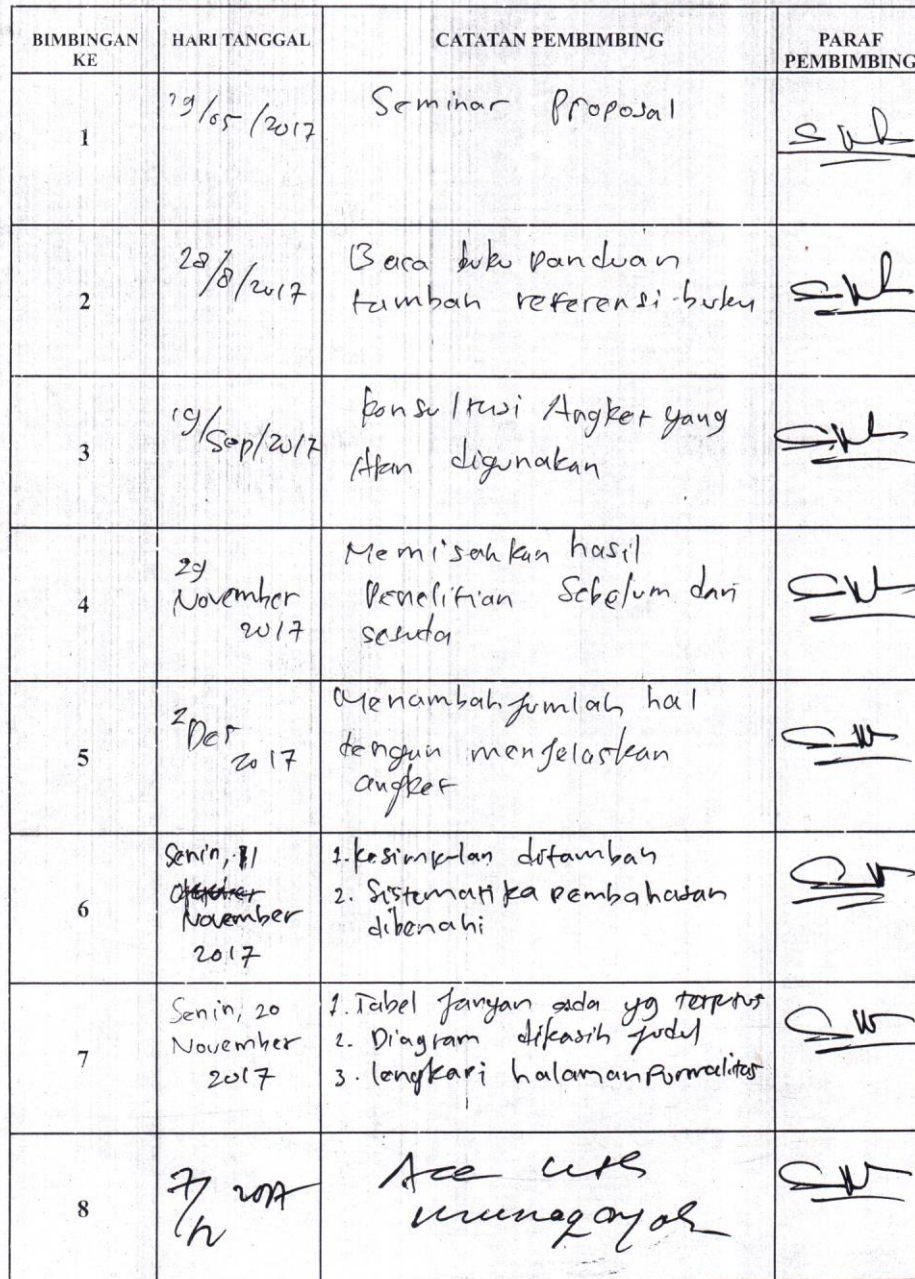 BIMBINGAN KE HARI TANGGAL CATATAN PEMBIMBING PARAF PEMBIMBING
1 19/05/2017 Seminar Proposal
2 28/8/2017 Baca buku panduan
tambah referensi buku
3 19/Sep/2017 konsultasi Angket yang
Akan digunakan
4 29 November 2017 Memisahkan hasil
Penelitian Sebelum dan
sesuda
5 2 Des 2017 Menambah jumlah hal
dengan menjelaskan
angket
6 Senin, 11 November 2017 1. kesimpulan ditambah
2. Sistematika pembahasan
dibenahi
7 Senin, 20 November 2017 1. Tabel jangan ada yg terputus
2. Diagram dikasih judul
3. lengkapi halaman Formalitas
8 2017 Acc
munaqosyah